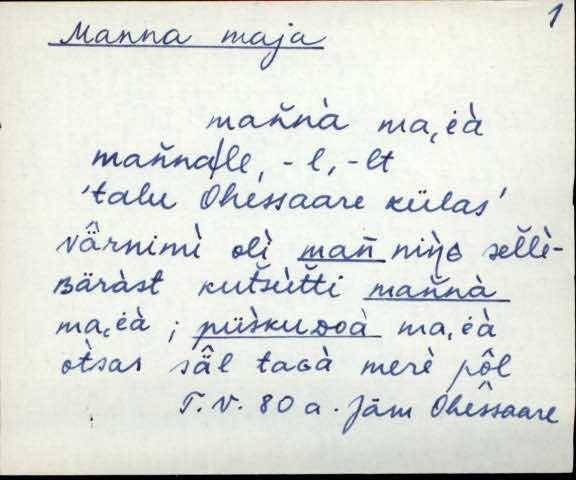 1
Manna maja
mañnà ma,èà
mañnalle, -l, -lt
'talu Ohessaare külas'
vârnimì olì mañ niŋG sel̆lè-
Bäràst kut̆šùt̆ti mañnà
ma,èà ; püìskuᴅoà ma,èà
òt̀sas säl taGà merè pôl
T.V. 80 a. Jäm Ohêssaare